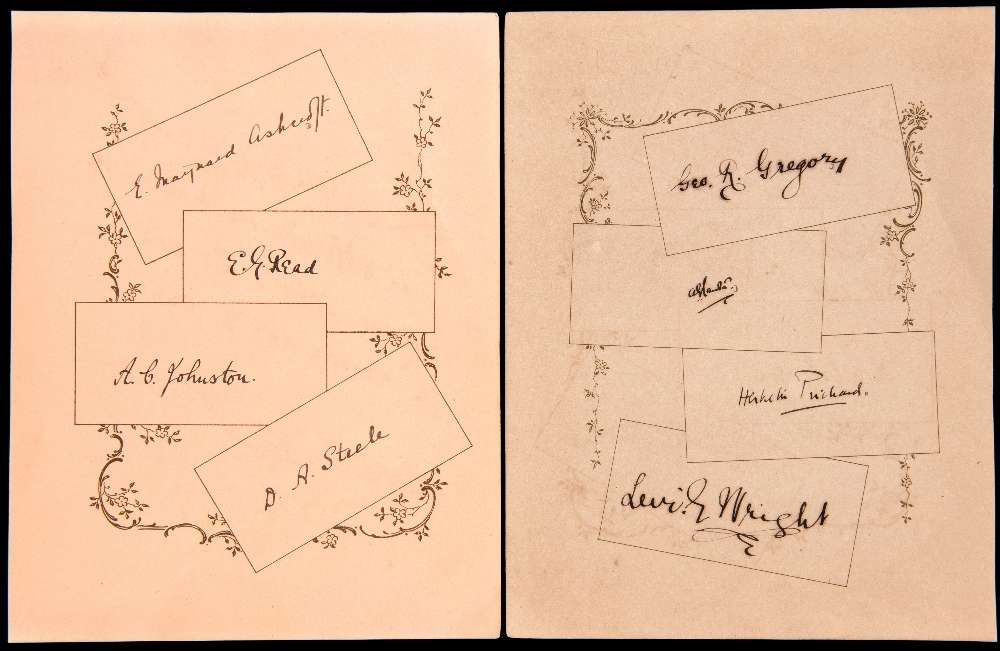 E. Maynard Ashcroft.
E. G. Read
A. C. Johnston.
D. A. Steele
Geo. R. Gregory
Hesketh Prichard.
Levi. G Wright